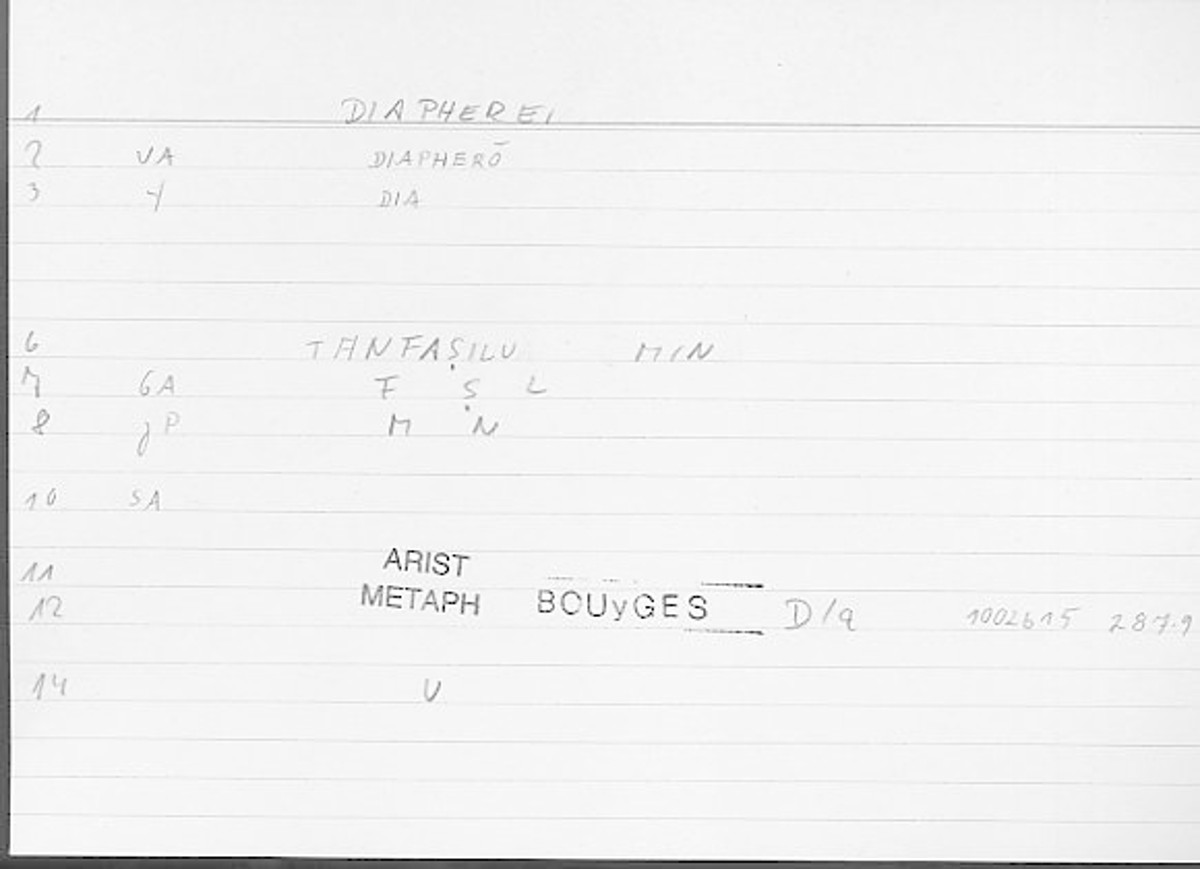 1 DIAPHEREI
2 VA DIAPHERŌ
3 Y DIA
6 TANFAṢILU MIN
7 GA F Ṣ L
8 JP M N
10 SA
11 ARIST
12 METAPH BOUyGES D/a 1002b15 287.9
14 U